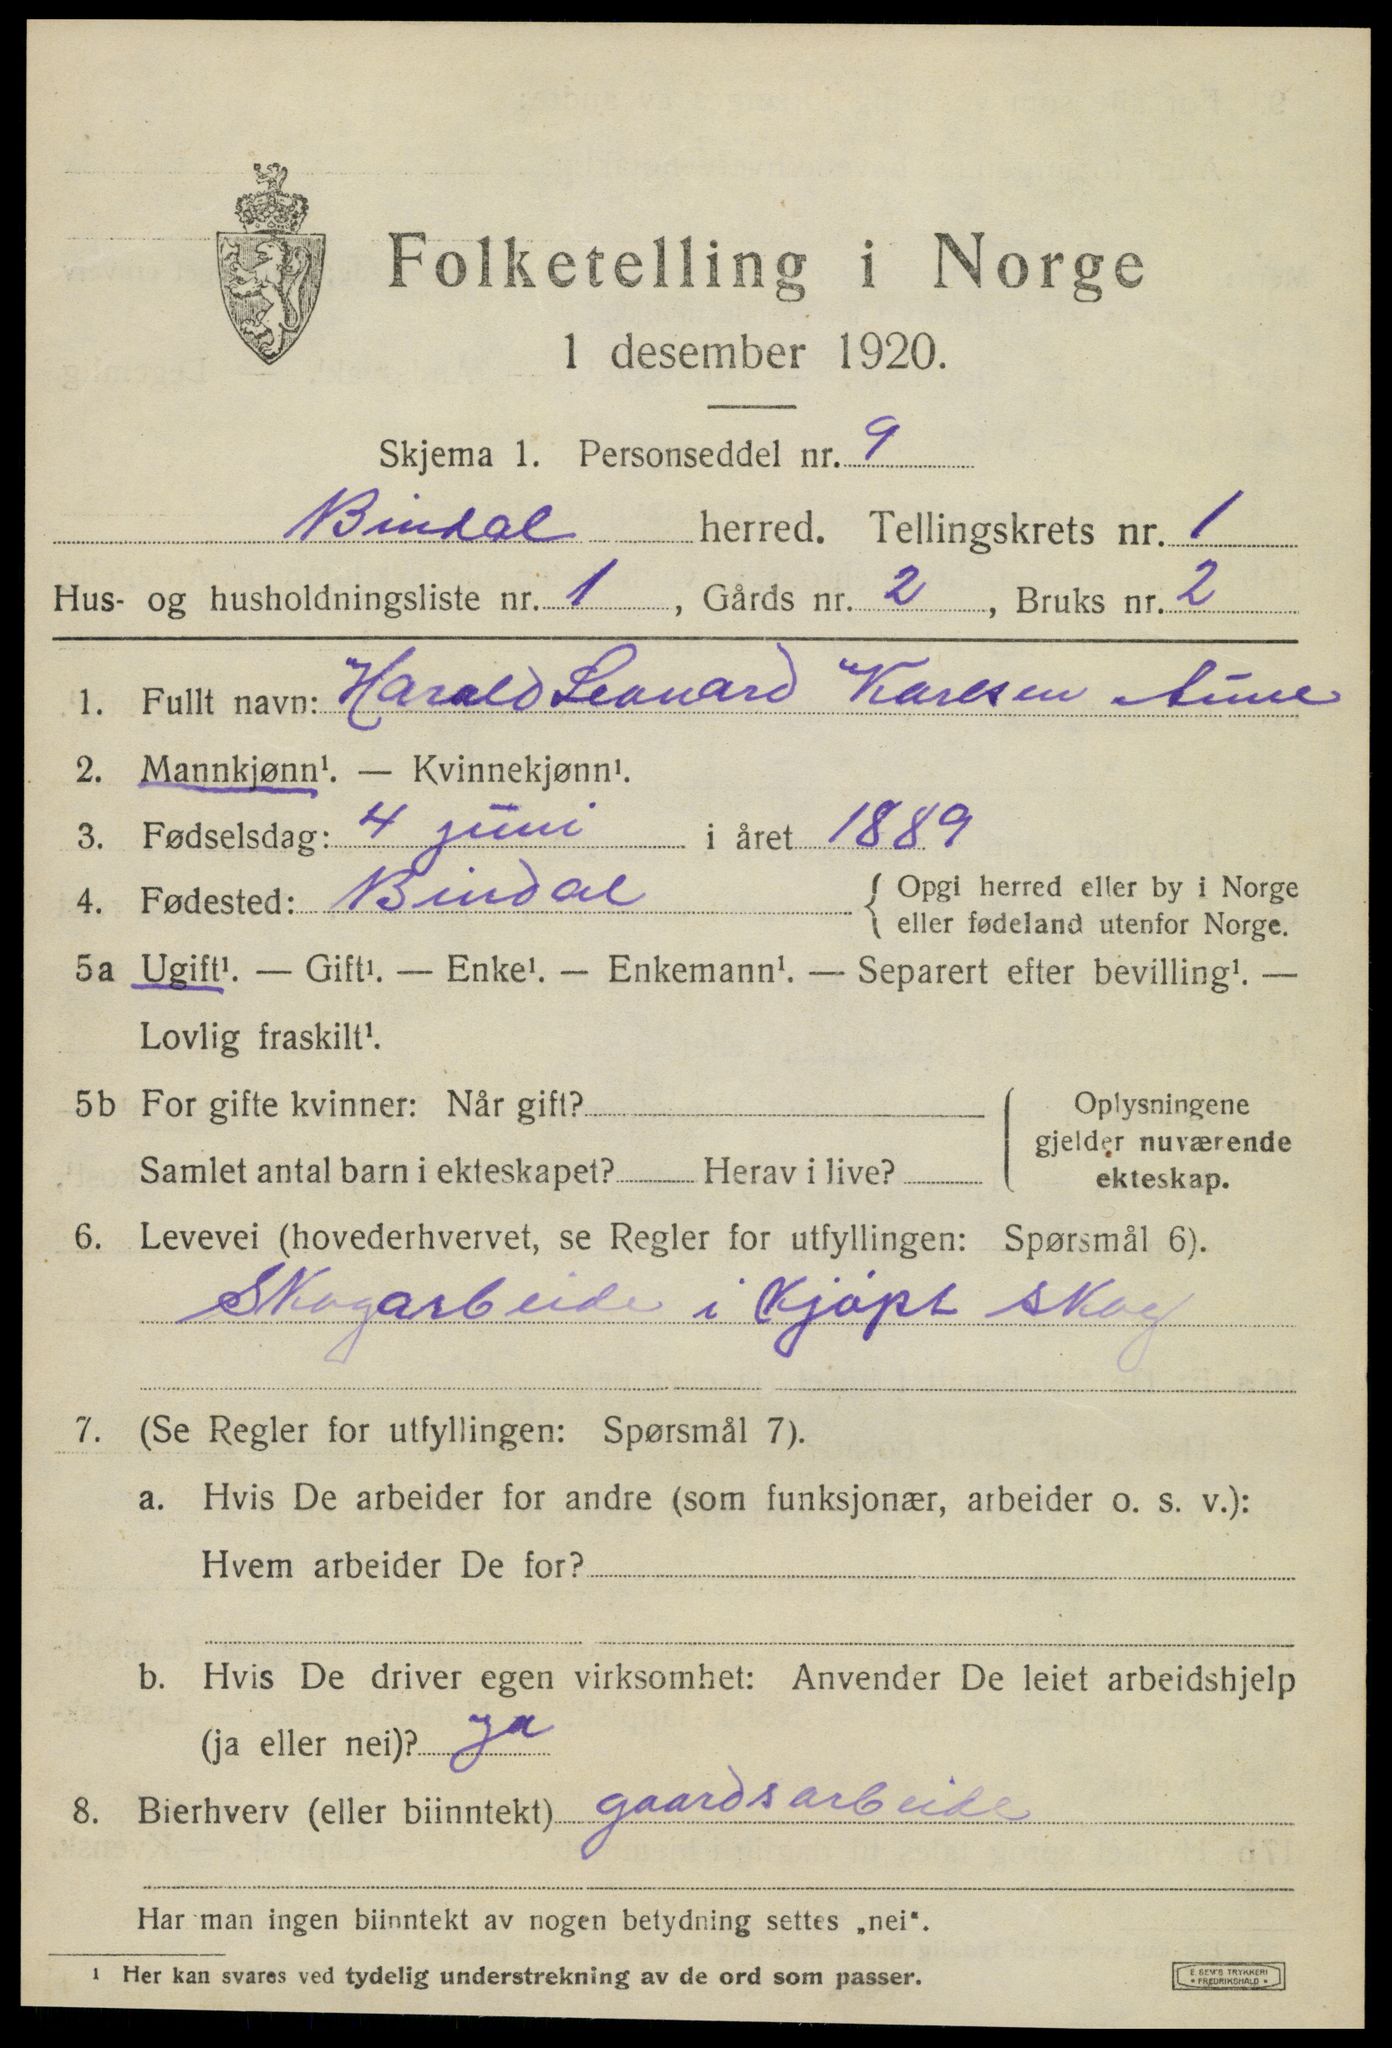 Folketelling i Norge
1 desember 1920.
Skjema 1. Personseddel nr. 9
Bindal herred. Tellingskrets nr. 1
Hus- og husholdningsliste nr. 1, Gårds nr. 2, Bruks nr. 2
1. Fullt navn: Harald Leonard Karlsen Aune
2. Mannkjønn¹. — Kvinnekjønn¹.
3. Fødselsdag: 4 juni i året 1889
4. Fødested: Bindal { Opgi herred eller by i Norge
eller fødeland utenfor Norge.
5a Ugift¹. — Gift¹. — Enke¹. — Enkemann¹. — Separert efter bevilling¹. —
Lovlig fraskilt¹.
5b For gifte kvinner: Når gift? Oplysningene
gjelder nuværende
Samlet antal barn i ekteskapet? Herav i live? ekteskap.
6. Levevei (hovederhvervet, se Regler for utfyllingen: Spørsmål 6).
Skogarbeide i kjøpt skog
7. (Se Regler for utfyllingen: Spørsmål 7).
a. Hvis De arbeider for andre (som funksjonær, arbeider o. s. v.):
Hvem arbeider De for?
b. Hvis De driver egen virksomhet: Anvender De leiet arbeidshjelp
(ja eller nei)? ja
8. Bierhverv (eller biinntekt) gaardsarbeide
Har man ingen biinntekt av nogen betydning settes „nei“.
¹ Her kan svares ved tydelig understrekning av de ord som passer.
E SEM'S TRYKKERI
• FREDRIKSHALD •